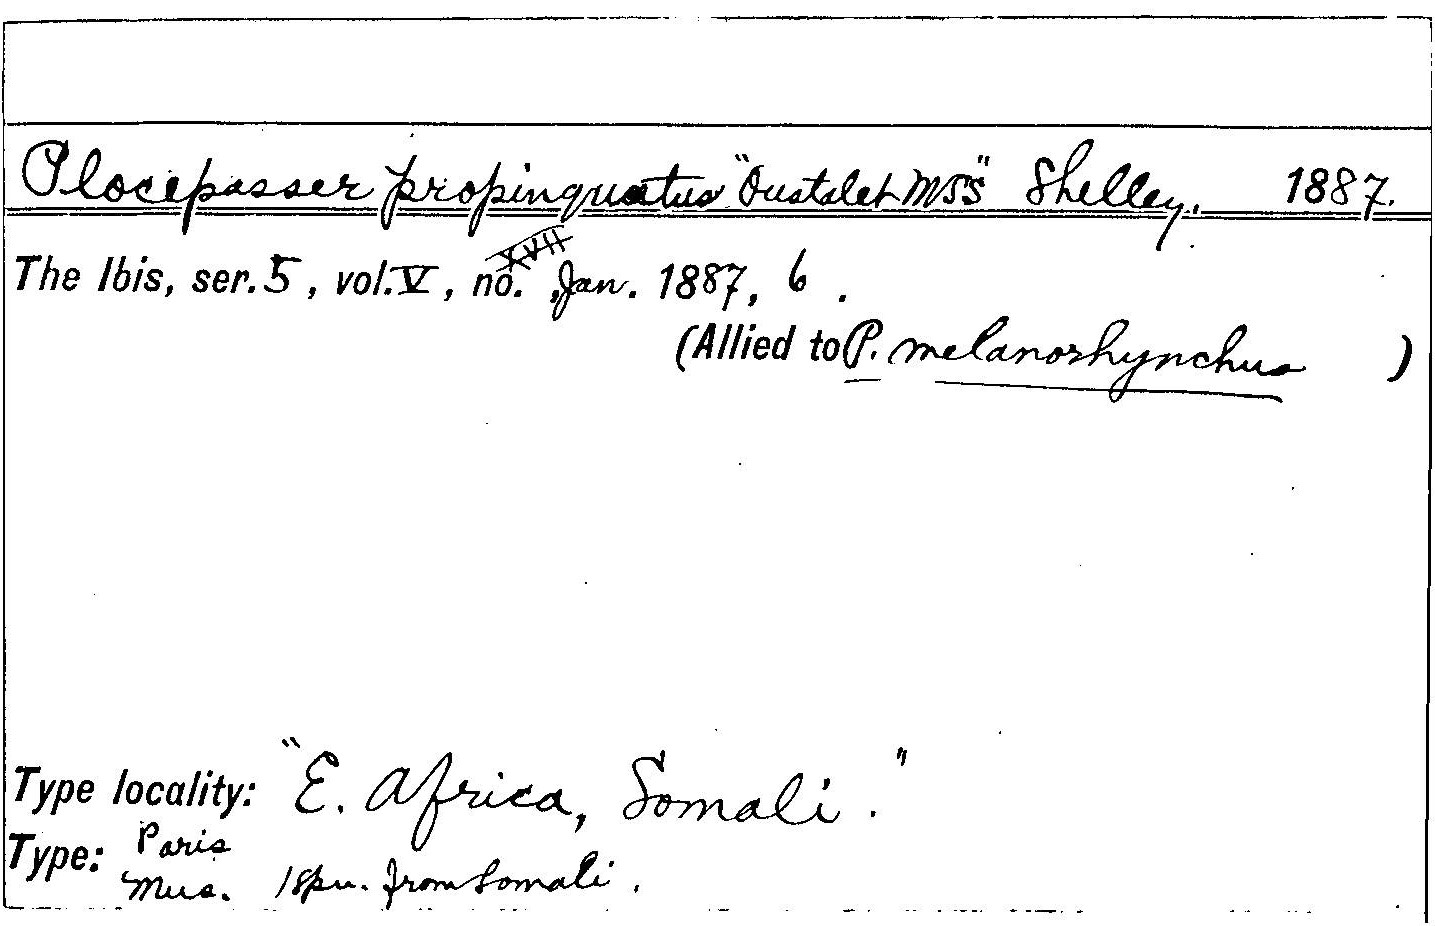 Plocepasser propinquatus "Oustalet MSS" Shelley, 1887.
The Ibis, ser. 5, vol. V, no. XVII, Jan. 1887, 6.
(Allied to P. melanorhynchus )
Type locality: "E. Africa, Somali."
Type: Paris
Mus. 1 spn. from Somali.